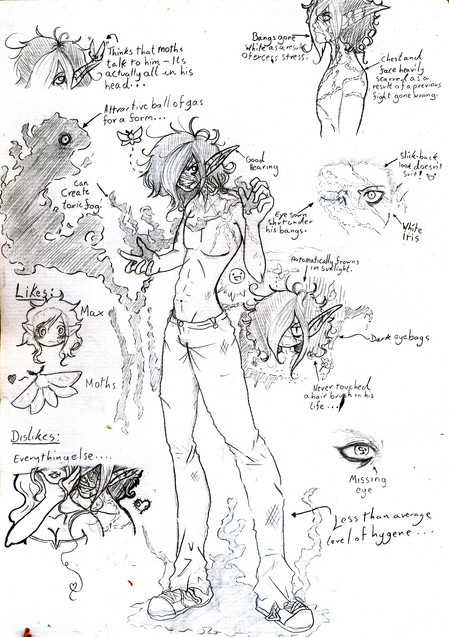 Thinks that moths
talk to him - Its
actually all in his
head...
Bangs gone
White as a result
of excess stress.
Chest and
face heavily
scarred as a
result of a previous
fight gone wrong.
Attractive ball of gas
for a form...
can
Create
toxic fog.
Good
Hearing
Slick-back
look doesn't
suit!
Eye sewn
Shut under
his bangs.
White
Iris
Automatically frowns
in sunlight.
Likes:
Max
Moths
Dark eyebags
Never touched
a hair brush in his
life...
Dislikes:
Everything else....
Missing
eye
Less than average
level of hygene...